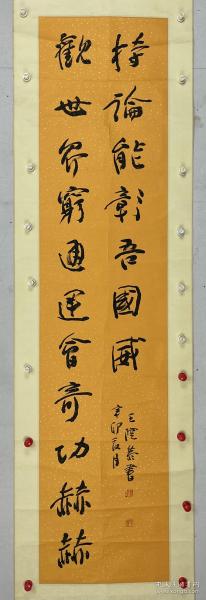 觀世界窮通運會奇功赫赫
持論能彰吾國威
辛卯夏月